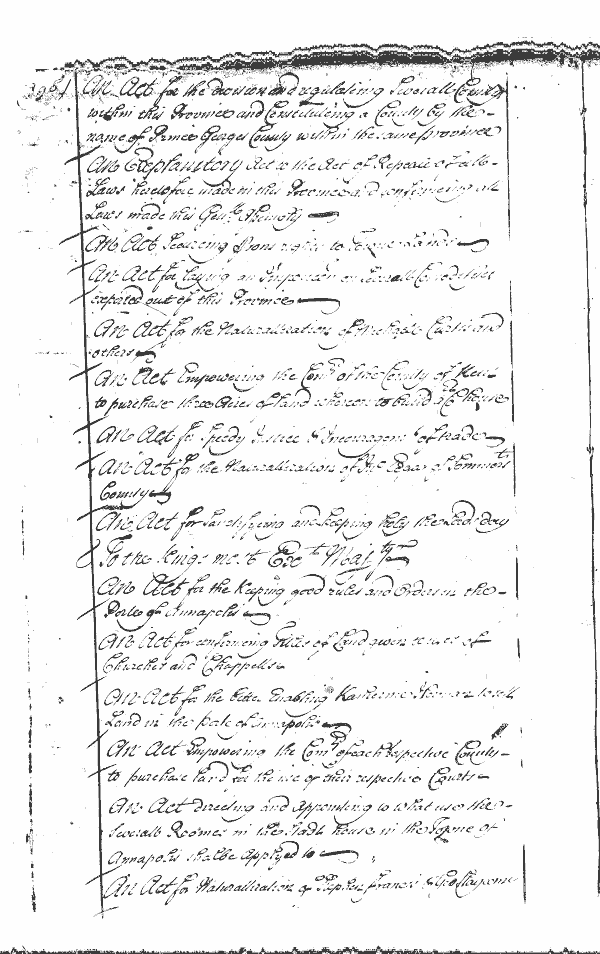 An Act for the division and regulating Severall Countys
within this Province and Constituting a County by the
name of Prince Georges County within the same Province
An Explanatory Act to the Act of Repeale of all
Laws heretofore made in this Province and confirming all
Laws made this Genll Assembly
An Act Securing rights to Land
An Act for laying an Imposition on Severall Comodities
exported out of this Province
An Act for the Naturallization of Michaele Curtis and
others
An Act Empowering the Comrs of the County of Kent
to purchase three Acres of Land whereon to build a Ct house
An Act for Speedy Justice & Encouragemt of trade
An Act for the Naturallization of of Sommersett
County
An Act for Sanctifying and keeping holy the Lords day
To the Kings most Exct Majty
An Act for the keeping good rules and Orders in the
Porte of Annapolis
An Act for confirming titles of Land given to use of
Churches and Chappells
An Act for the better Enabling Katherine to sell
Land in the Porte of Annapolis
An Act Empowering the Comrs of each respective County
to purchase land for the use of their respective Courts
An Act directing and appointing to what use the
Severall Roomes in the Stadt house in the Towne of
Annapolis shalbe applyed to
An Act for Naturallization of Stephen Francis &